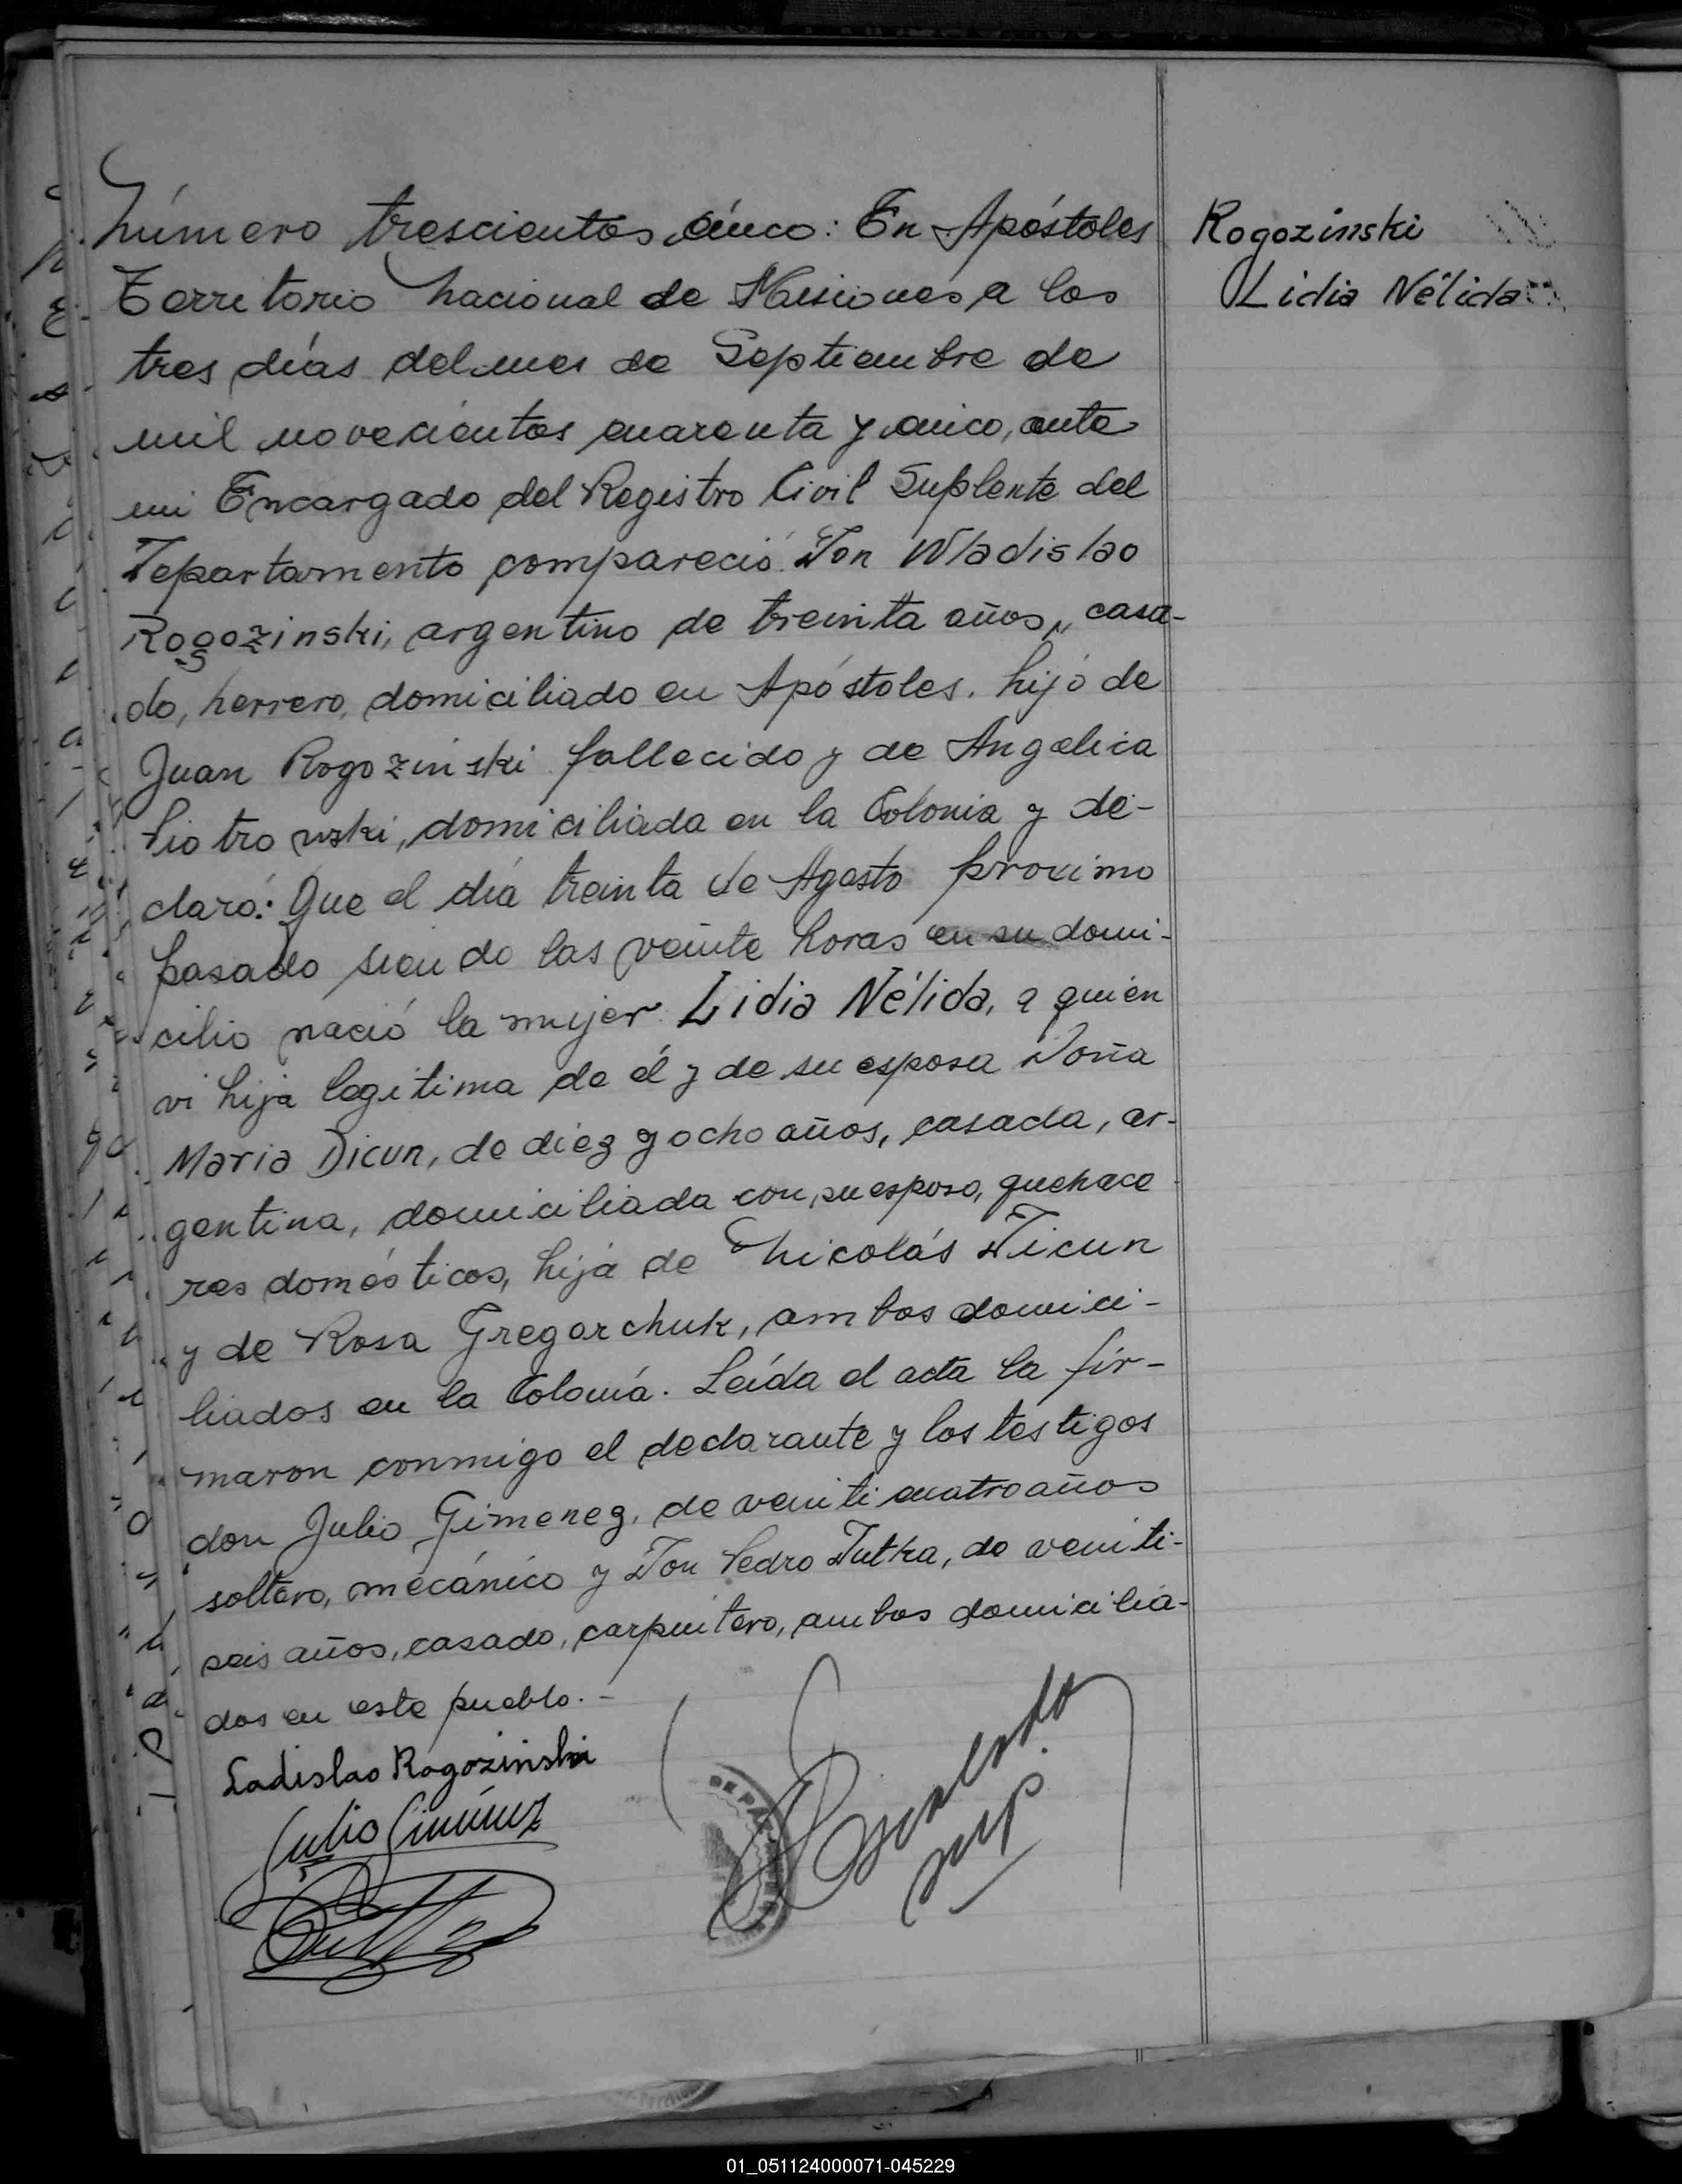 Número trescientos cinco: En Apóstoles
Territorio Nacional de Misiones a los
tres días del mes de Septiembre de
mil novecientos cuarenta y cinco, ante
mi Encargado del Registro Civil Suplente del
Departamento compareció Don Wladislao
Rogozinski, argentino de treinta años, casa-
do, herrero, domiciliado en Apóstoles. hijo de
Juan Rogozinski fallecido y de Angelica
Piotrowski, domiciliada en la Colonia y de-
claró: Que el día treinta de Agosto proximo
pasado siendo las veinte horas en su domi-
cilio nació la mujer Lidia Nélida, a quien
vi hija legitima de él y de su esposa Doña
Maria Dicun, de diez y ocho años, casada, ar-
gentina, domiciliada con su esposo, quehace
res domésticos, hija de Nicolás Dicun
y de Rosa Gregorchuk, ambos domici-
liados en la Colonia. Leída el acta la fir-
maron conmigo el declarante y los testigos
don Julio Gimenez, de veinticuatro años
soltero, mecánico y Don Pedro Dutka, de veinti-
seis años, casado, carpintero, ambos domicilia-
dos en este pueblo.-
Ladislao Rogozinski
Julio Giménez
sup.
Rogozinski
Lidia Nélida
01_051124000071-045229